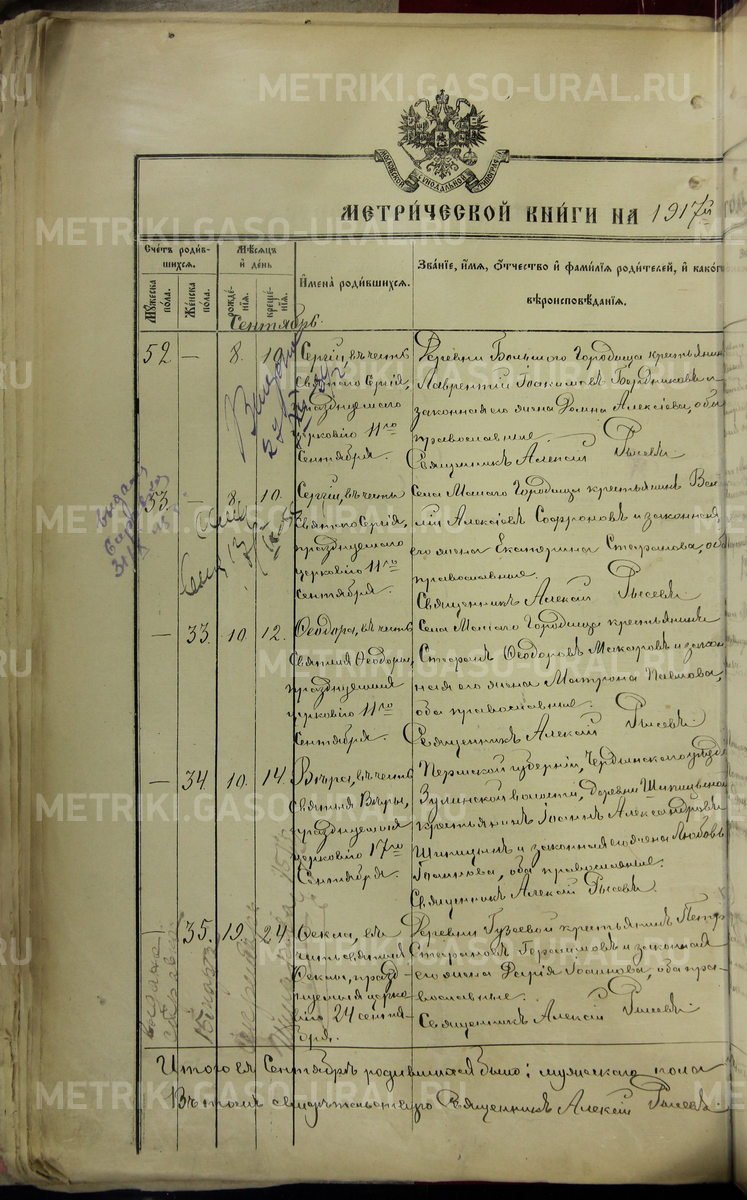 METRIKI.GASO-URAL.RU
МОСКОВСКОЙ СѴНОДАЛЬНОЙ ТИПОГРАФ
МЕТРИ́ЧЕСКОЙ КНИ́ГИ НА 1917й
Счетъ роди́вшихся.
Мѣ́сяцъ и день
Имена̀ роди́вшихся.
Зва́нїе, и́мя, о́тчество и фами́лїя роди́телей, и како́гѡ
вѣроисповѣ́данїя.
Мꙋ́жеска по́ла.
Же́нска по́ла.
рожде́нїя.
креще́нїя.
Сентябрь.
52 — 8. 10. Сергій, въ честь
святого Сергія,
празднуемаго
церковію 11го
Сентября.
Деревни Большого Городища крестьянинъ
Лаврентій Іоакимовъ Бердниковъ и
законная его жена Домна Алексіева, оба
православные.
Священникъ Алексій Рысевъ
53. — 8. 10. Сергій, въ честь
святого Сергія,
празднуемаго
церковію 11го
Сентября.
Села Малаго Городища крестьянинъ Васи
лій Алексіевъ Софроновъ и законная
его жена Екатерина Стефанова, оба
православные.
Священникъ Алексій Рысевъ
— 33. 10. 12. Ѳеодора, въ честь
Святыя Ѳеодоры,
празднуемыя
церковію 11го
Сентября.
Села Малаго Городища крестьянинъ
Стефанъ Ѳеодоровъ Макаровъ и закон
ная его жена Матрона Павлова,
оба православные.
Священникъ Алексій Рысевъ
— 34 10. 14. Вѣра, въ честь
святыя Вѣры,
празднуемыя
церковію 17го
Сентября.
Пермской губерніи, Чердынскаго уѣзда
волости, деревни
крестьянинъ Іоаннъ Александровъ
и законная его жена Любовь
Іоаннова, оба православные.
Священникъ Алексій Рысевъ.
— 35. 19. 24. Ѳекла, въ
честь святыя
Ѳеклы, празд-
нуемыя церко
вію 24 сентя-
бря.
Деревни Гузеевой крестьянинъ Петръ
Стефановъ Герасимовъ и законная
его жена Дарія Іоаннова, оба пра-
вославные.
Священникъ Алексій Рысевъ
Итого въ Сентябрѣ родившихся было: мужескаго пола
Въ томъ свидѣтельствую Священникъ Алексій Рысевъ